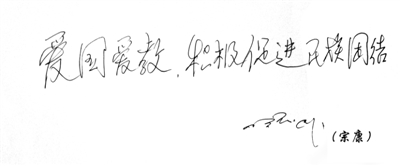 爱国爱教、积极促进民族团结
（宗康）